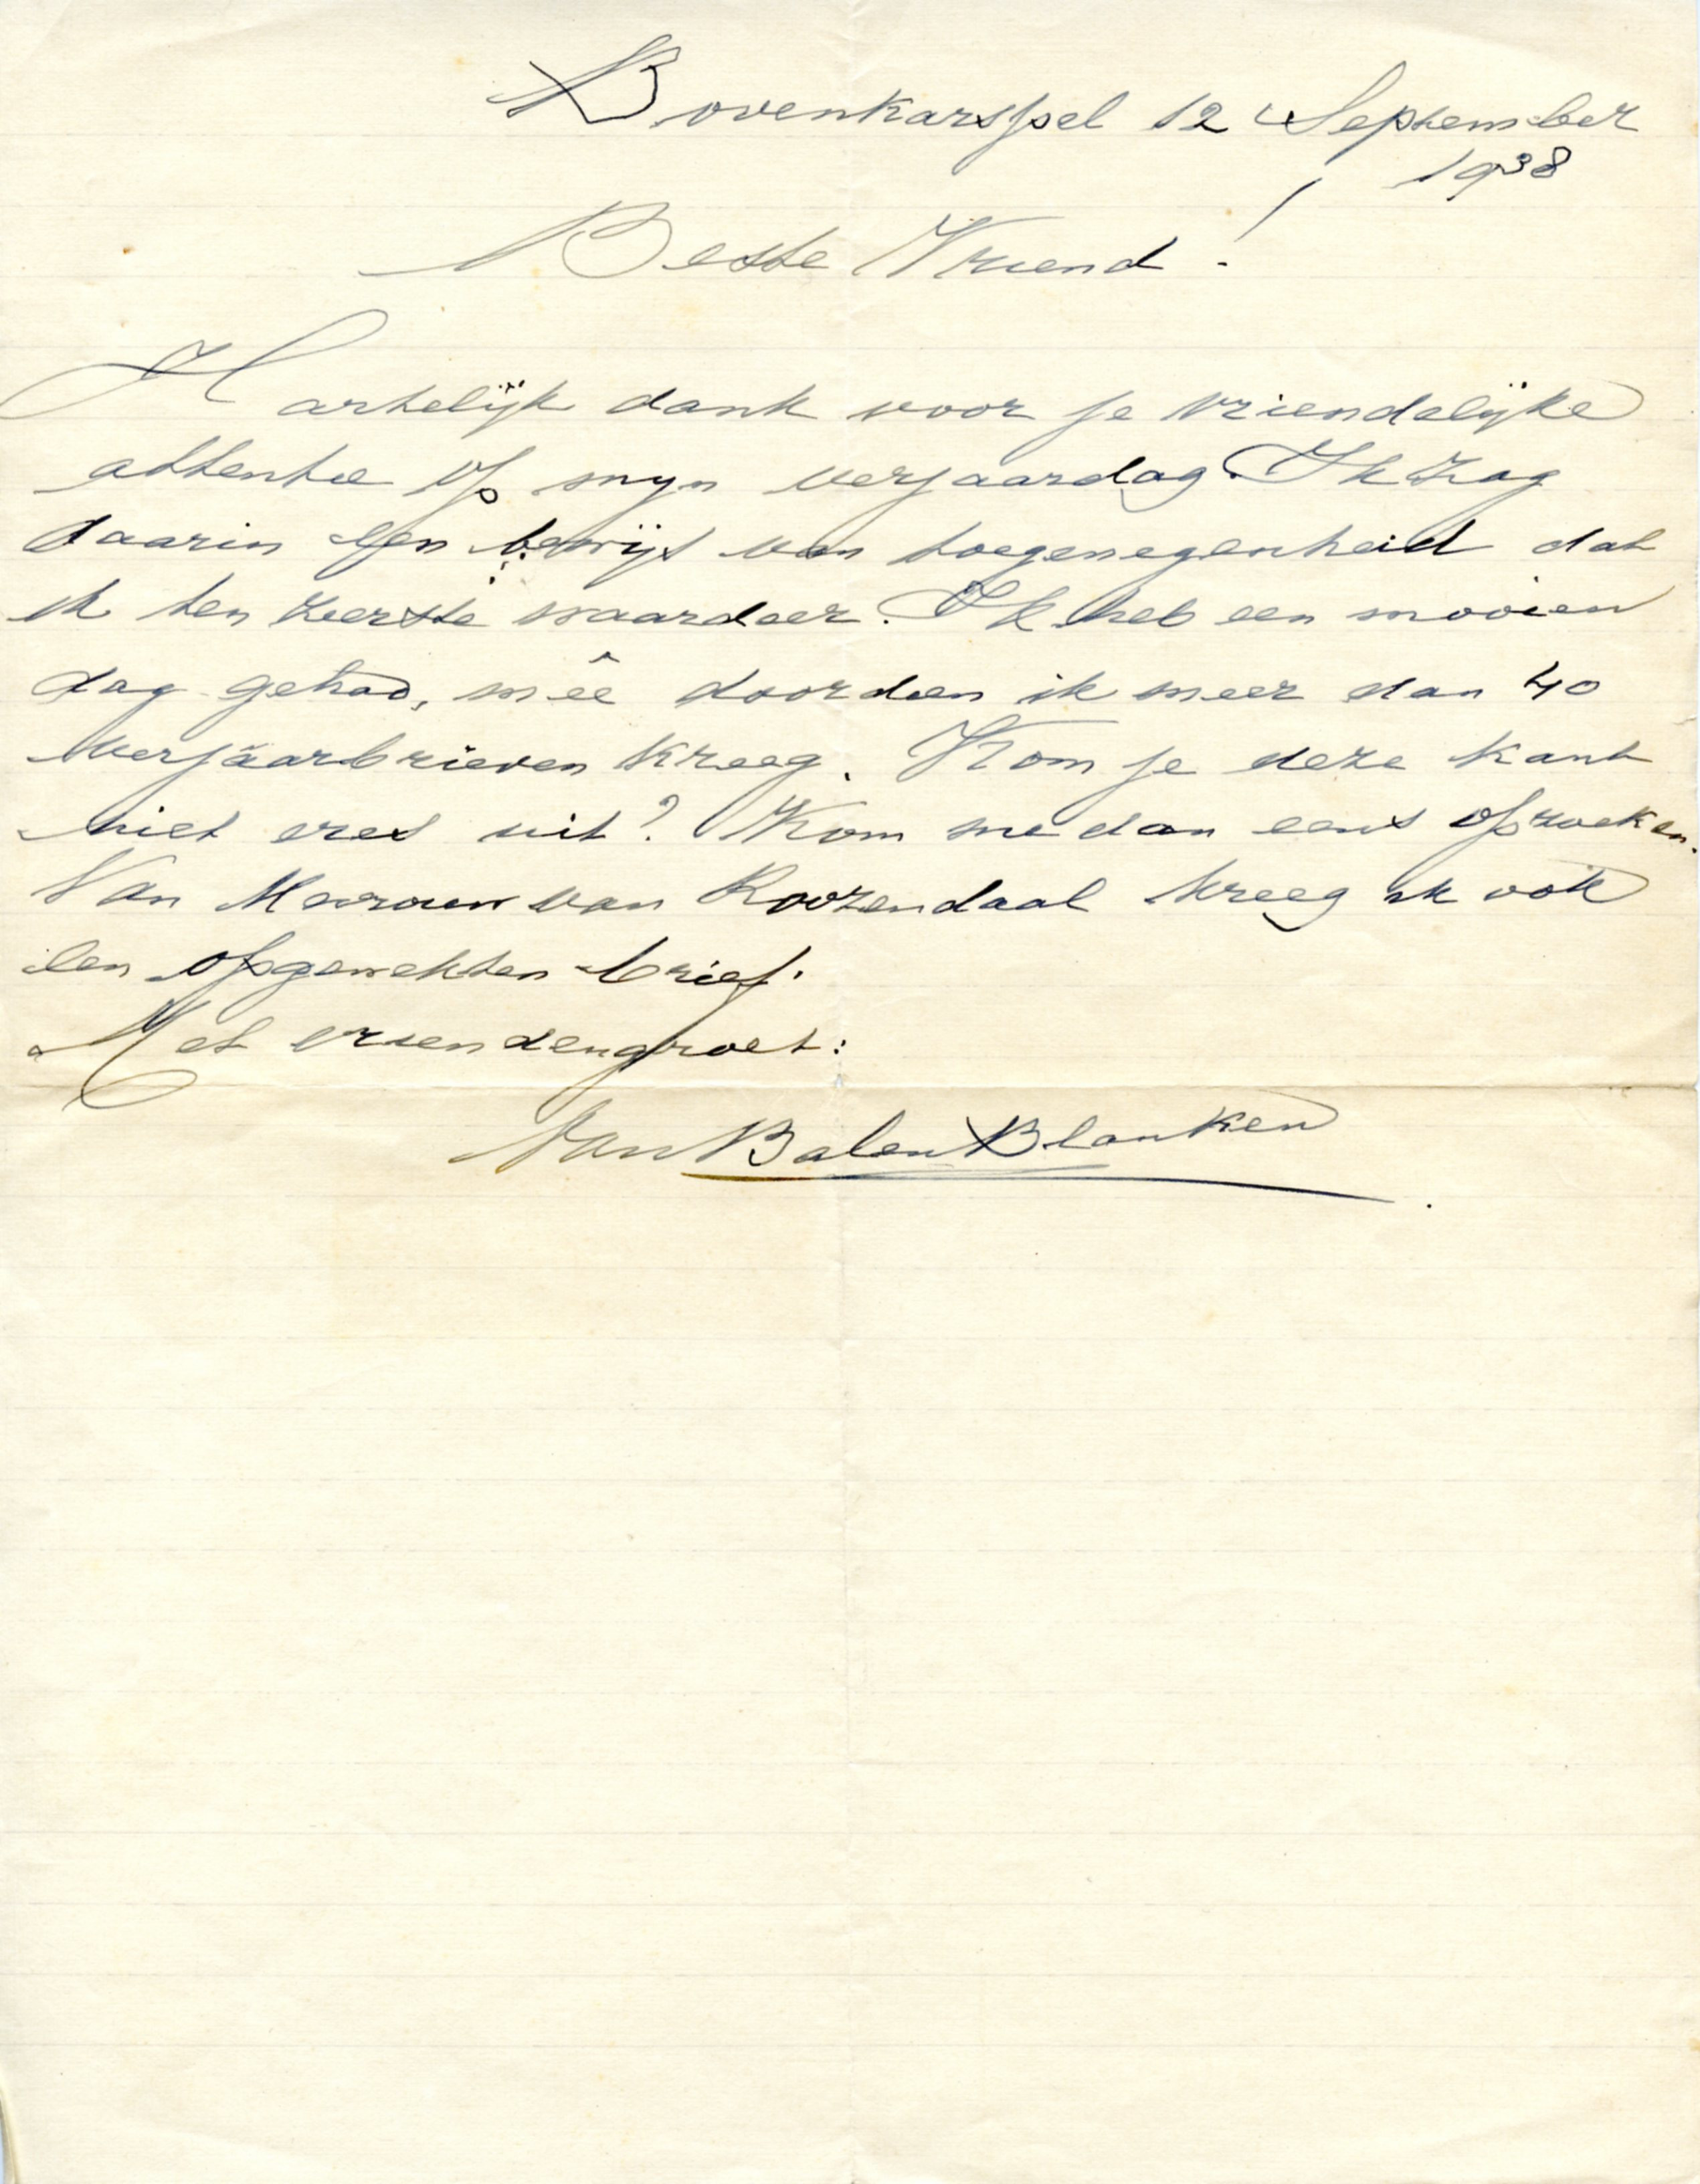 Bovenkarspel 12 September
1938
Beste Vriend!
Hartelijk dank voor je vriendelijke
attentie op mijn verjaardag. Ik zag
daarin een bewijs van toegenegenheid dat
ik ten zeerste waardeer. Ik heb een mooien
dag gehad, meê doordien ik meer dan 40
verjaarbrieven kreeg. Kom je deze kant
niet eres uit? Kom me dan eens opzoeken.
Van Mevrouw van Roozendaal kreeg ik ook
een opgewekten brief.
Met vriendengroet:
Van Balen Blanken